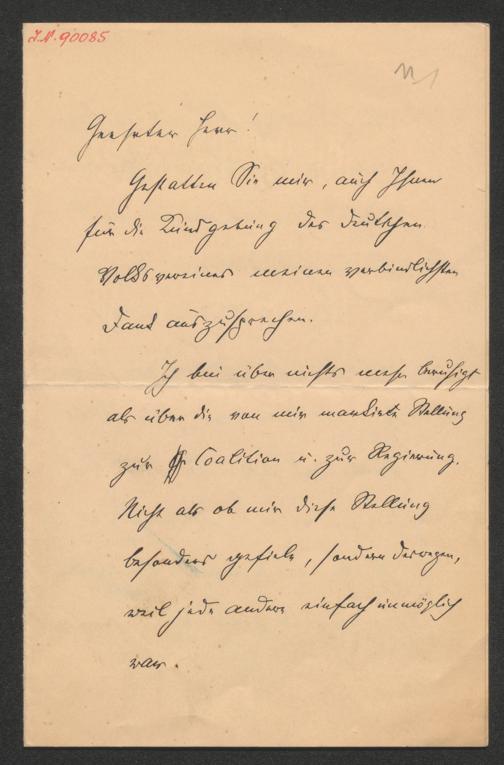 I.N. 90085
Geehrter Herr!
Gestatten Sie mir, auch Ihnen
für die Kundgebung des deutschen
Volksvereines meinen verbindlichsten
Dank auszusprechen.
Ich bin über nichts mehr beruhigt
als über die von mir markirte Stellung
zur Coalition u. zur Regierung.
Nicht als ob mir diese Stellung
besonders gefiele, sondern deswegen,
weil jede andere einfach unmöglich
war.